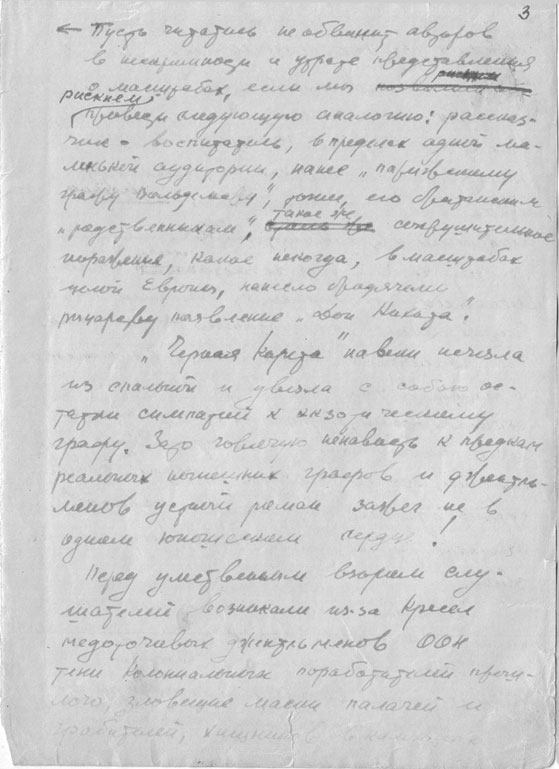 3
← Пусть читатель не обвинит авторов
в нескромности и утрате представления
о масштабах, если мы
рискнем
провести следующую аналогию: рассказ-
чик - воспитатель, в пределах одной ма-
ленькой аудитории, нанес „парижскому
графу Вольдемару", его британским
„родственникам", такое же сокрушительное
поражение, какое некогда, в масштабах
целой Европы, нанесло бродячему
рыцарству появление „Дон Кихота".
„Черная Карета" навеки исчезла
из спальной и увезла с собою ос-
татки симпатий к экзотическому
графу. Зато горячую ненависть к предкам
реальных нынешних графов и джентль-
менов устный роман зажег не в
одном юношеском сердце!
Перед умственным взором слу-
шателей возникали из-за кресел
медоточивых джентльменов ООН
тени колониальных поработителей прош-
лого, зловещие маски палачей и
грабителей, хищников